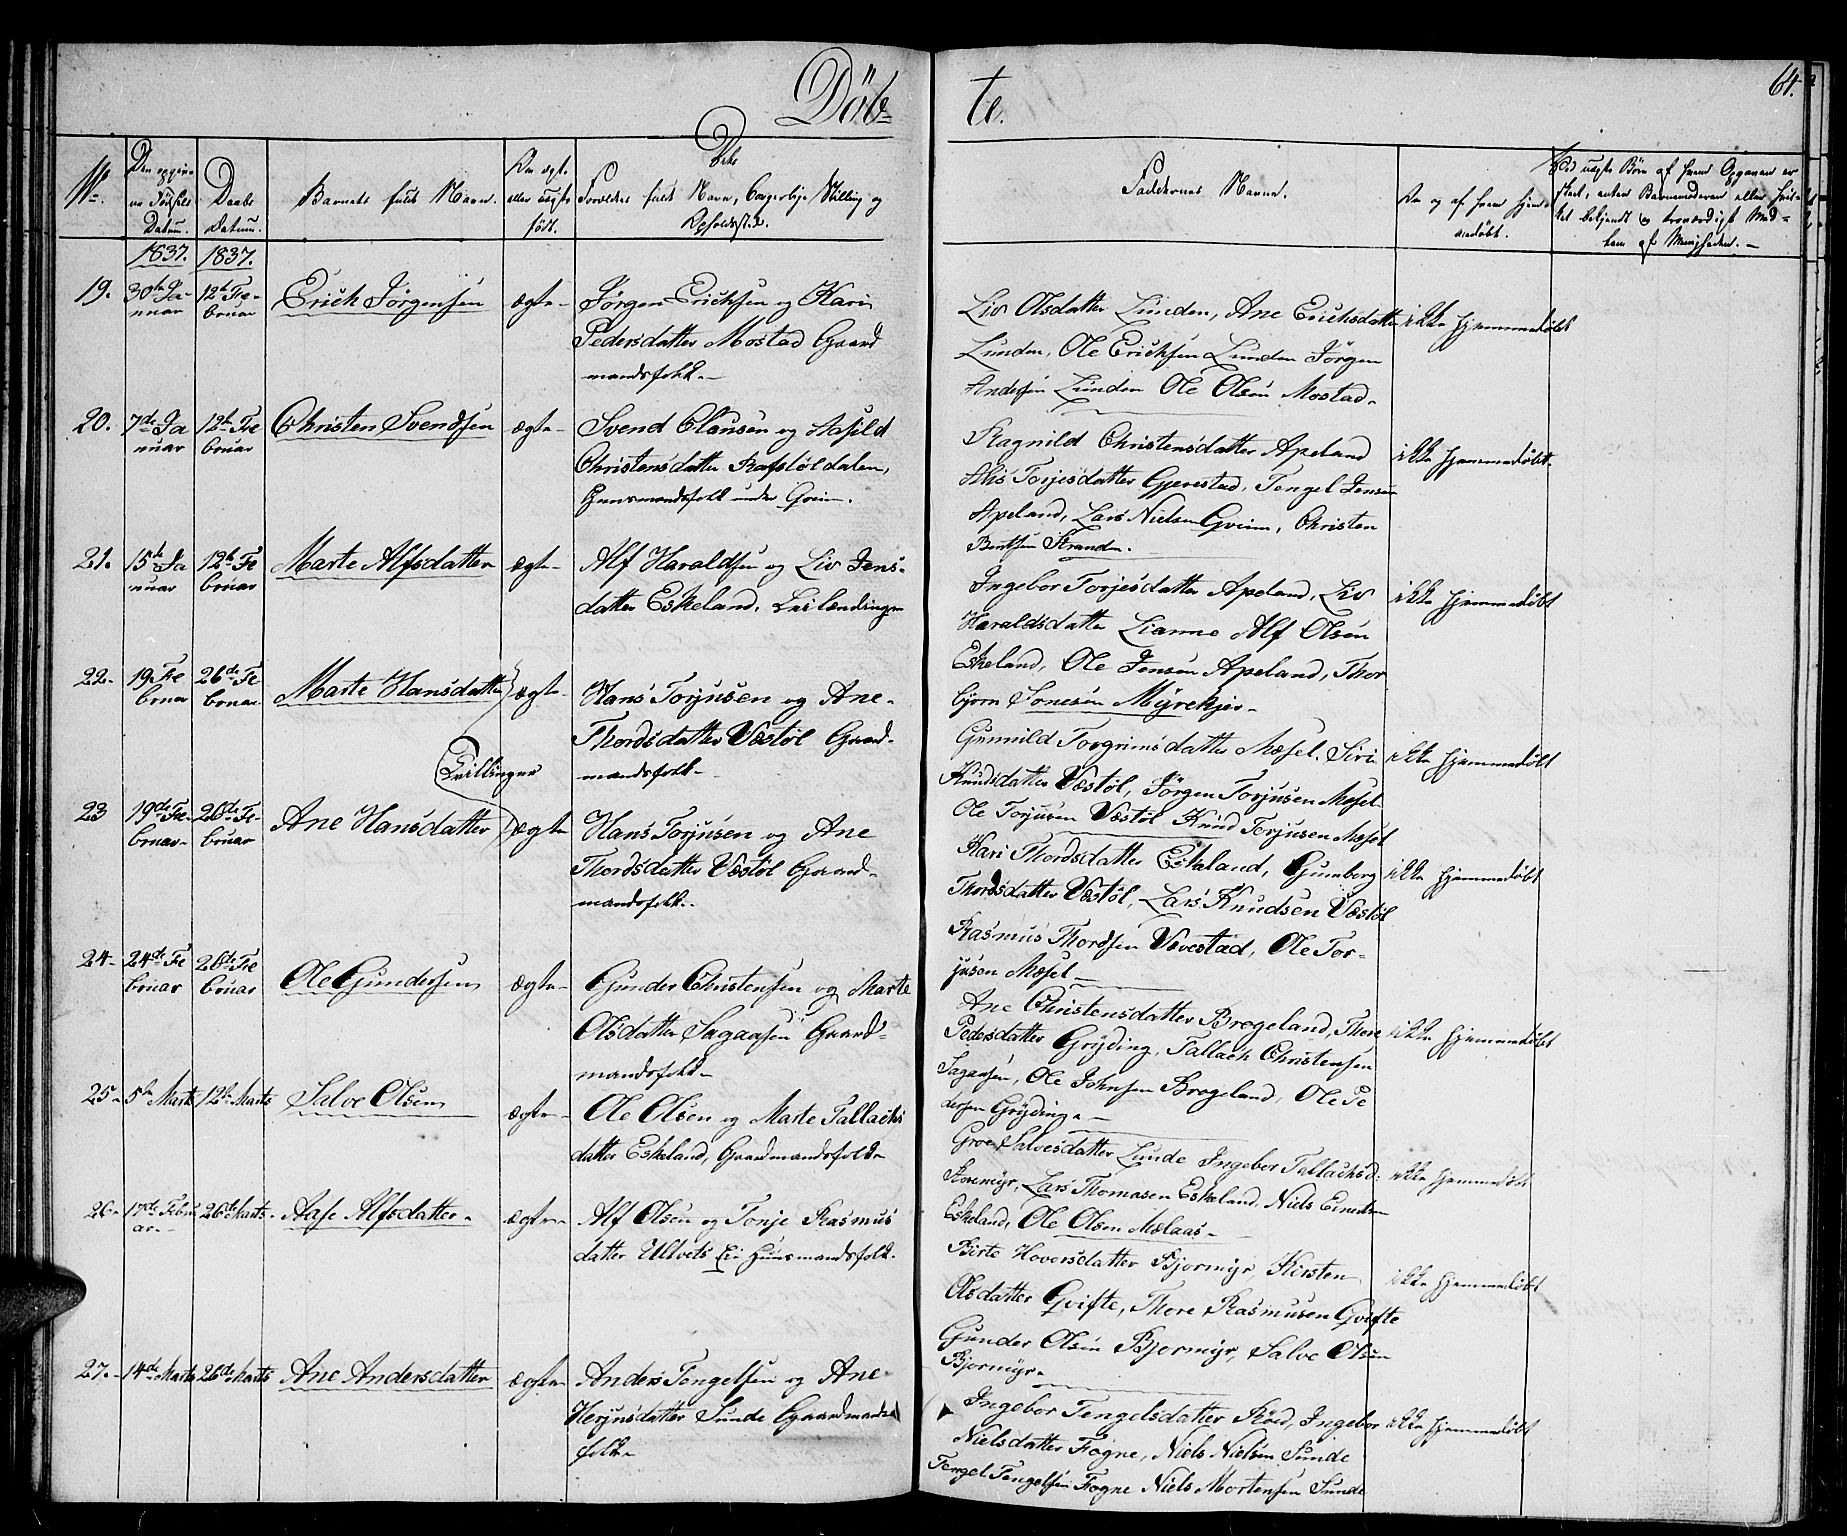 Døb=
te.
64.
No.
Den opgiv=
ne Fødsels
Datum.
Daabs
Datum.
Barnets fulde Navn.
Om ægte
eller uægte
født.
Forældres fulde Navn, borgerlige Stilling og
Opholdssted.
Faddernes Navne.
Om og af hvem hjem=
medøbt.
Ved uægte Børn af hvem Opgaven er
skeet, enten Barnemoderen eller hvil=
ket bekjendt og troværdigt Med=
lem af Menigheden. -
1837. 1837.
19. 30te Ja=
nuar
12te Fe=
bruar
Erich Jørgensen
ægte
Jørgen Erichsen og Kari
Pedersdatter Mostad Gaard
mandsfolk.
Liv Olsdatter Lunden, Ane Erichsdatter
Lunden, Ole Erichsen Lunden Jørgen
Andersen Lunden Ole Olsen Mostad.
ikke hjemmedøbt
20. 7de Ja
nuar
12te Fe
bruar
Christen Svendsen
ægte
Svend Clausen og Aasild
Christensdatter Rafstøldalen,
Huusmandsfolk under Hveim.
Ragnild Christensdatter Apeland
Alis Torjesdatter Gjerestad, Tengel Jensen
Apeland, Lars Nielsen Hveim, Christen
Bentsen Stranden.
ikke hjemmedøbt.
21. 15de Ja
nuar
12te Fe
bruar
Marte Alfsdatter
ægte
Alf Haraldsen og Liv Jens=
datter Eskeland, Leilændinger
Ingebor Torjesdatter Apeland, Liv
Haraldsdatter Lianne Alf Olsen
Eskeland, Ole Jensen Apeland, Thor
bjørn Sonesen Myrekjer.
ikke hjemmedøbt
22. 19. Fe
bruar
26de Fe
bruar
Marte Hansdatter
ægte
Hans Torjusen og Ane
Thordsdatter Væstøl Gaard=
mandsfolk.
Gunnild Torgrimsdatter Mæsel. Siri
Knudsdatter Væstøl, Jørgen Torjusen Mæsel
Ole Torjusen Væstøl Knud Torjusen Mæsel
ikke hjemmedøbt
Tvillinger
23 19de Fe=
bruar
26de Fe=
bruar
Ane Hansdatter
ægte
Hans Torjusen og Ane
Thordsdatter Væstøl Gaard=
mandsfolk.
Kari Thordsdatter Eskeland, Gunborg
Thordsdatter Væstøl, Lars Knudsen Væstøl
Rasmus Thordsen Vevestad, Ole Tor=
jusen Mæsel.
ikke hjemmedøbt
24. 24de Fe
bruar
26de Fe
bruar
Ole Gundersen
ægte
Gunder Christensen og Marte
Olsdatter Sagaasen Gaard=
mandsfolk.
Ane Christensdatter Brøgeland, Thore
Pedersdatter Gryding, Tallach Christensen
Sagaasen, Ole Johnsen Brøgeland, Ole Pe
dersen Gryding.
ikke hjemmedøbt
25. 5te Marts 12te Marts
Salve Olsen
ægte
Ole Olsen og Marte Tallachs
datter Eskeland, Gaardmandsfolk
Groe Salvesdatter Lunde Ingebor Tallachsd:
Storemyr, Lars Thomasen Eskeland, Niels Einersen
Eskeland, Ole Olsen Mælaas.
ikke hjemmedøbt
26. 17de Febru
ar.
26de Marts.
Aase Alfsdatter.
ægte
Alf Olsen og Tonje Rasmus
datter Ulltvets Ei Huusmandsfolk.
Birte Hoversdatter Bjormyr, Kirsten
Olsdatter Gvifte, Thore Rasmusen Gvifte
Gunder Olsen Bjormyr, Salve Olsen
Bjormyr.
ikke hjemmedøbt
27. 14de Marts 26de Marts
Ane Andersdatter
ægte
Anders Tengelsen og Ane
Herjusdatter Sunde Gaardmands
folk.
Ingebor Tengelsdatter Røed, Ingebor
Nielsdatter Fogne, Niels Nielsen Sunde
Tengel Tengelsen Fogne Niels Mortensen Sunde
ikke hjemmedøbt